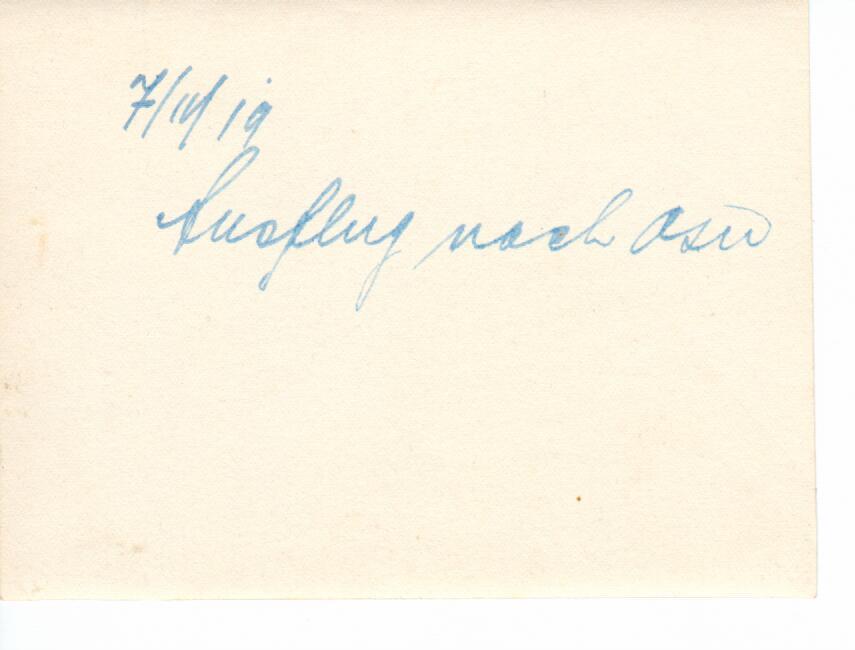 7/IV/19
Ausflug nach